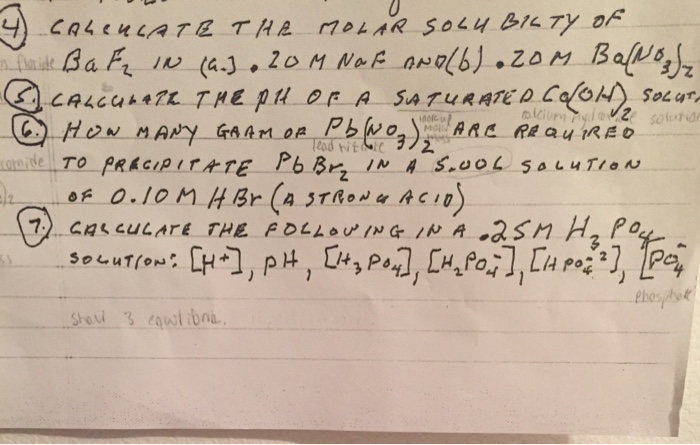 4) CALCULATE THE MOLAR SOLUBILTY OF
BaF₂ IN (a.) .20 M NaF AND (b) .20 M Ba(NO₃)₂
5.) CALCULATE THE pH OF A SATURATED Ca(OH)₂ SOLUT
calcium solution
6.) HOW MANY GRAM OF Pb(NO₃)₂ ARE REQUIRED
lead
TO PRECIPITATE PbBr₂ IN A 5.00L SOLUTION
OF 0.10 M HBr (A STRONG ACID)
7.) CALCULATE THE FOLLOWING IN A .25M H₃PO₄
SOLUTION: [H⁺], pH, [H₃PO₄], [H₂PO₄⁻], [HPO₄⁻²], [PO₄⁻
Phosphate
Show 3 equilibria.